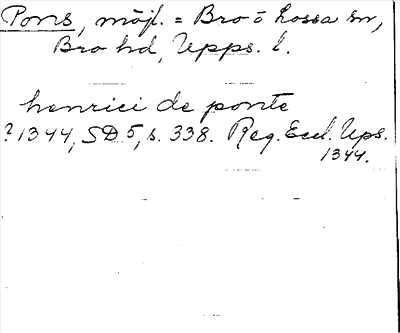 Pons, möjl. = Bro ö Lossa sn,
Bro hd, Upps. l.
henrici de ponte
? 1344, SD 5, s. 338. Reg. Eccl. Ups.
1344.